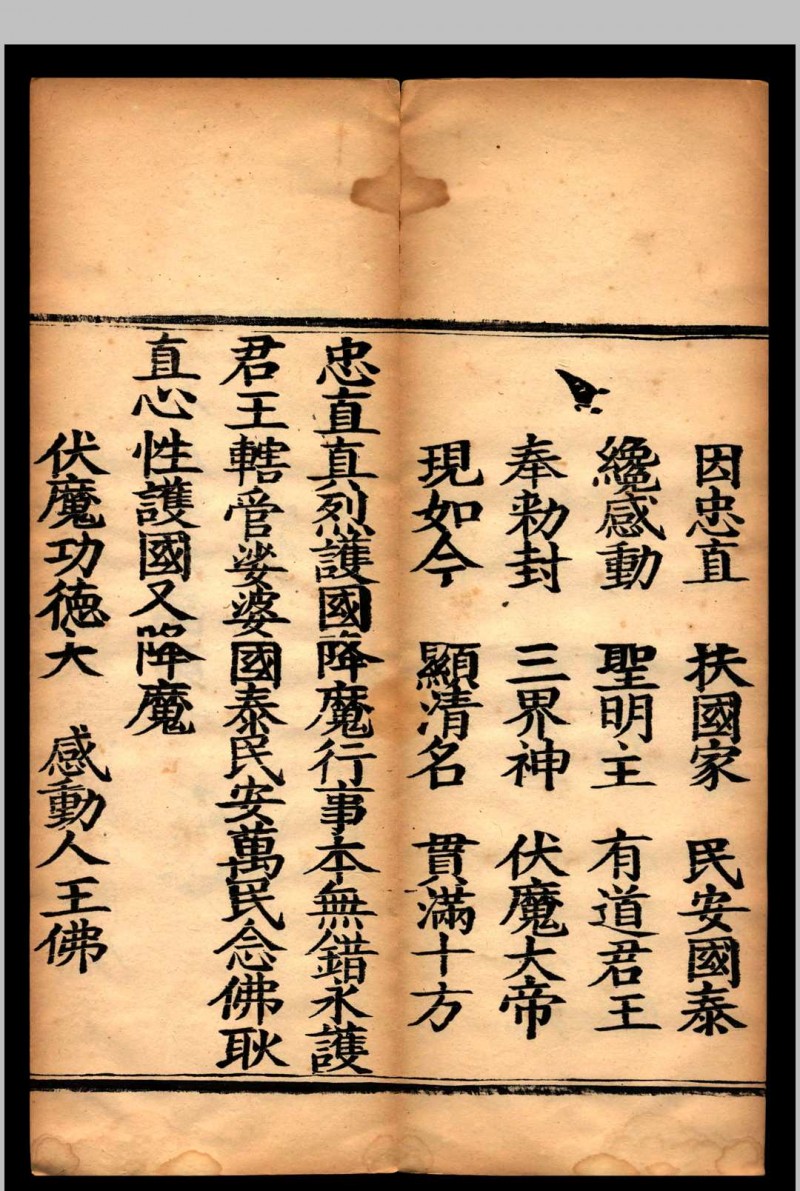 因忠直　扶國家　民安國泰
纔感動　聖明主　有道君王
奉勑封　三界神　伏魔大帝
現如今　顯清名　貫滿十方
忠直真烈護國降魔行事本無錯永護
君王轄管娑婆國泰民安萬民念佛耿
直心性護國又降魔
伏魔功德大　感動人王佛